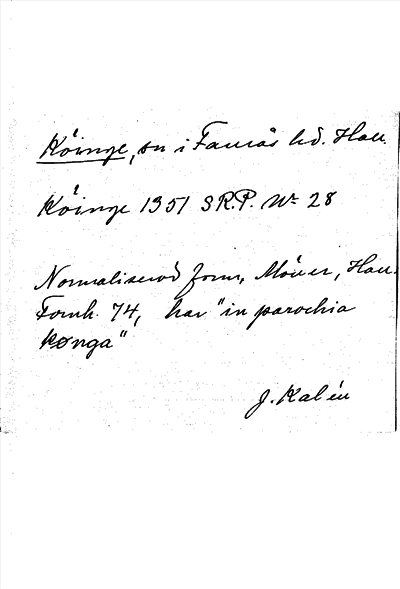 Köinge, sn i Faurås hd. Hall.
Köinge 1351 SRP. Nr 28
Normaliserad form, Möller, Hall.
Fornh. 74, har "in parochia
Kønga"
J. Kalén